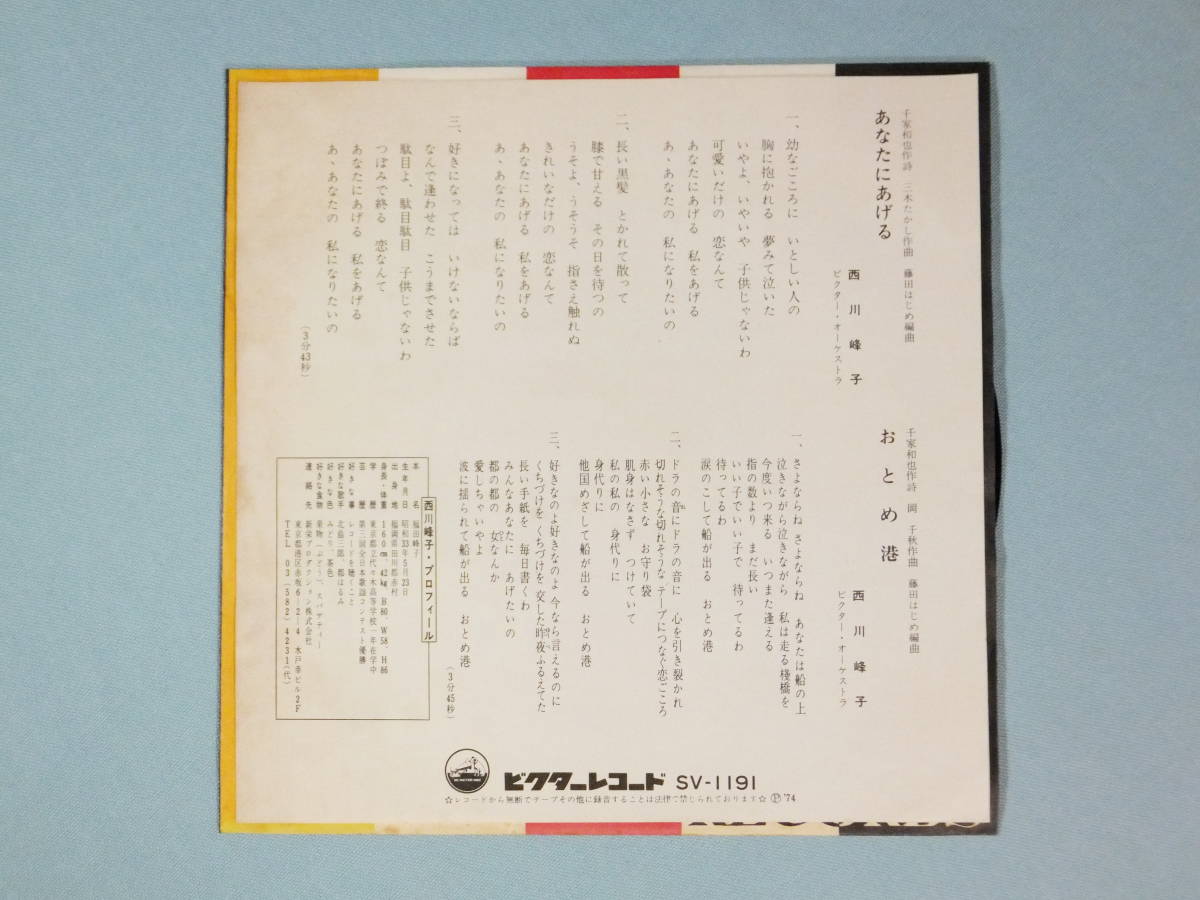 千家和也作詩　三木たかし作曲　藤田はじめ編曲
あなたにあげる
西川峰子
ビクター・オーケストラ
一、幼なごころに　いとしい人の
胸に抱かれる　夢みて泣いた
いやよ、いやいや　子供じゃないわ
可愛いだけの　恋なんて
あなたにあげる　私をあげる
あゝあなたの　私になりたいの
二、長い黒髪　とかれて散って
膝で甘える　その日を待つの
うそよ、うそうそ　指さえ触れぬ
きれいなだけの　恋なんて
あなたにあげる　私をあげる
あゝあなたの　私になりたいの
三、好きになっては　いけないならば
なんで逢わせた　こうまでさせた
駄目よ、駄目駄目　子供じゃないわ
つぼみで終る　恋なんて
あなたにあげる　私をあげる
あゝあなたの　私になりたいの
(3分43秒)
千家和也作詩　岡　千秋作曲　藤田はじめ編曲
おとめ港
西川峰子
ビクター・オーケストラ
一、さよならね　さよならね　あなたは船の上
泣きながら泣きながら　私は走る桟橋を
今度いつ来る　いつまた逢える
指の数より　まだ長い
いい子でいい子で　待ってるわ
待ってるわ
涙のこして船が出る　おとめ港
二、ドラの音にドラの音に　心を引き裂かれ
切れそうな切れそうな　テープにつなぐ恋ごころ
赤い小さな　お守り袋
肌身はなさず　つけていて
私の私の　身代りに
身代りに
他国めざして船が出る　おとめ港
三、好きなのよ好きなのよ　今なら言えるのに
くちづけを　くちづけを　交した昨夜ふるえてた
長い手紙を　毎日書くわ
みんなあなたに　あげたいの
都の都の　女なんか
愛しちゃいやよ
波に揺られて船が出る　おとめ港
(3分45秒)
西川峰子・プロフィール
本名　福田峰子
生年月日　昭和33年5月23日
出身地　福岡県田川郡赤村
身長・体重　160cm、42kg　B80、W58、H86
学歴　東京都立代々木高等学校一年在学中
芸歴　第三回全日本歌謡コンテスト優勝
好きな事　レコードを聴くこと
好きな歌手　北島三郎、都はるみ
好きな色　みどり、茶色
好きな食物　果物（ぶどう）、スパゲティー
連絡先　新栄プロダクション株式会社
東京都港区赤坂6-2-4　水戸幸ビル2F
TEL　03(582)4231(代)
ビクターレコード　SV-1191
☆レコードから無断でテープその他に録音することは法律で禁じられております☆　Ⓟ'74